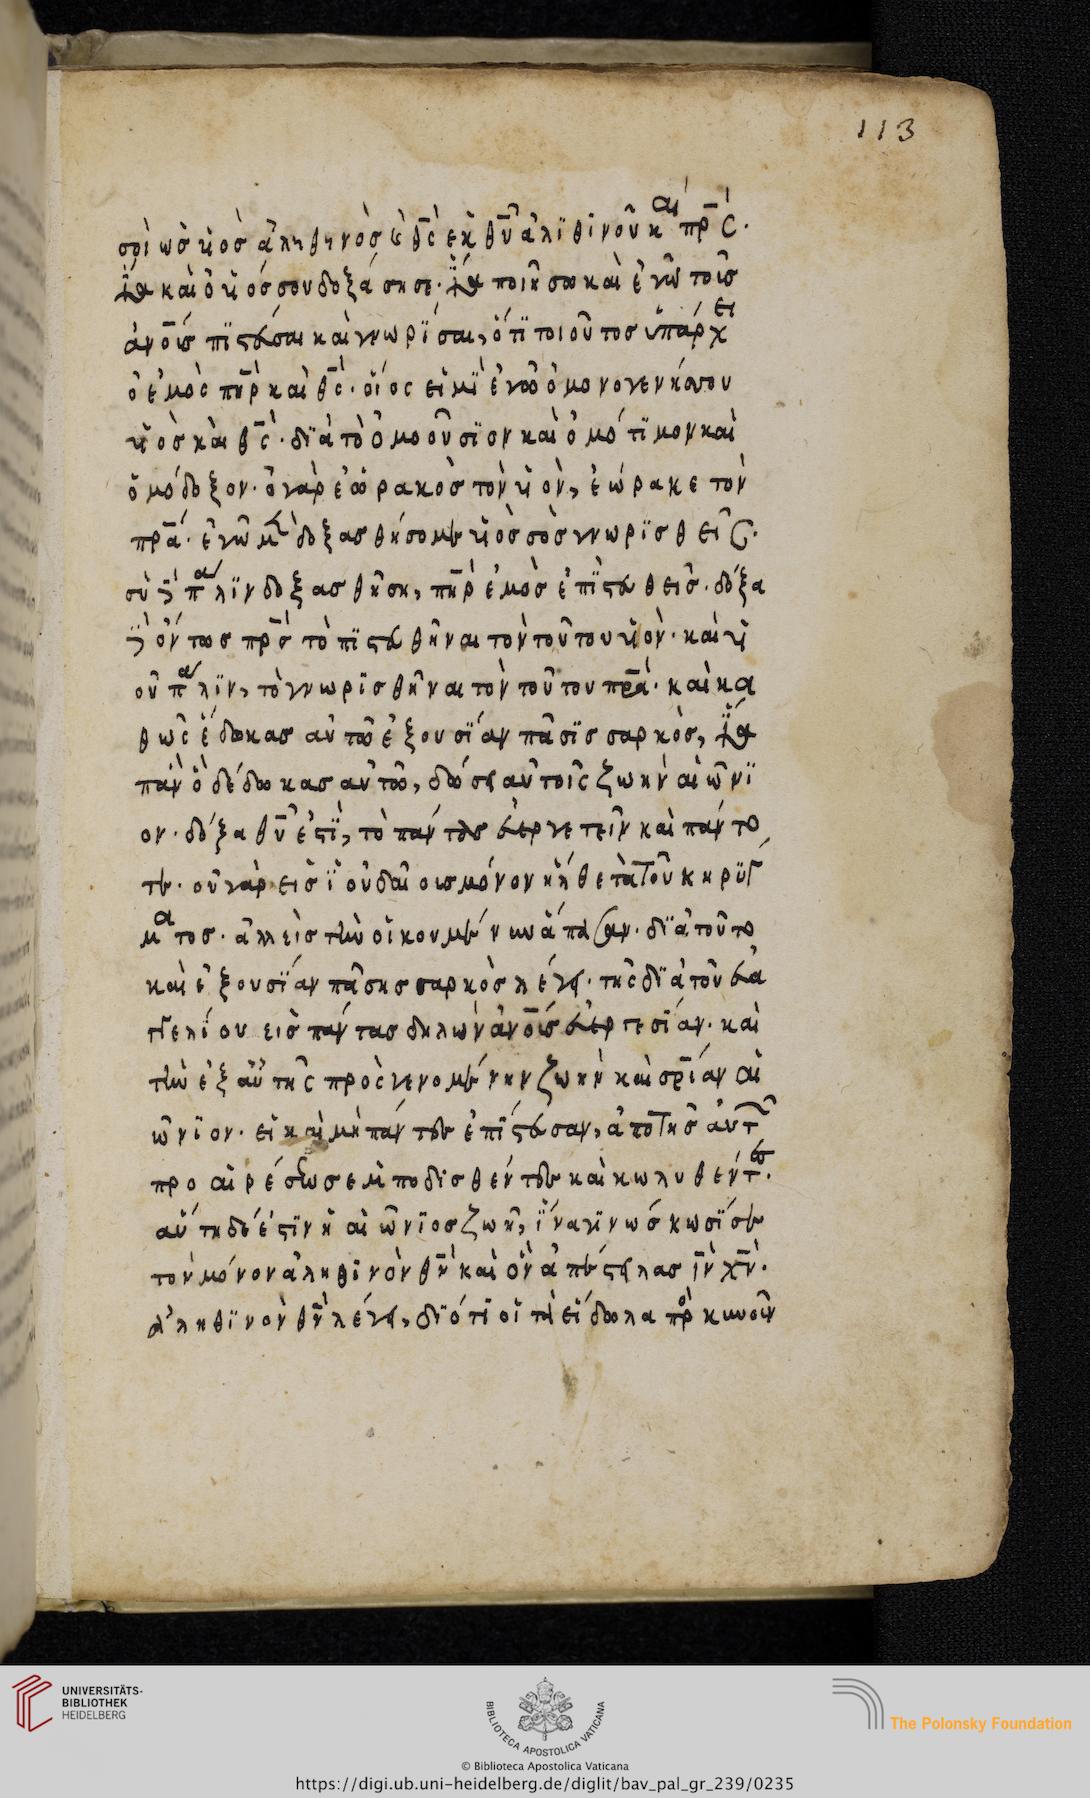 113
σοὶ ὡς υἱὸς ἀληθηνὸς κ(αὶ) θ̅ς̅ ἐκ θ̅υ̅ ἀλϊθϊνοῦ καὶ πρ̅ς̅.
ἵνα καὶ ὁ υἱός σου δοξάσῃ σε. ἵνα ποιήσω καὶ ἐγὼ τοῖς
ἀν̅ο̅ι̅ς πϊστεῦσαι καὶ γνωρΐσαι, ὅτϊ τοιοῦτος ὑπάρχει
ὁ ἐμὸς π̅η̅ρ̅ καὶ θ̅ς̅. οἷος εἰμῒ ἐγὼ ὁ μονογενής σου
υἱὸς καὶ θ̅ς̅. δϊὰ τὸ ὁμοούσϊον καὶ ὁμότϊμον καὶ
ὁμόδοξον. ὁ γὰρ ἑώρακὸς τὸν υἱὸν, ἑώρακε τὸν
π̅ρ̅α̅. ἐγὼ μὲν δοξασθήσομαι υἱὸς σὸς γνωρϊσθείς.
σὺ δὲ πάλϊν δοξασθήσῃ, π̅η̅ρ̅ ἐμὸς ἐπϊστευθείς. δόξα
δὲ ὄντως π̅ρ̅ς̅ τὸ πϊστευθῆναι τὸν τούτου υἱὸν. καὶ υἱ
οῦ πάλϊν, τὸ γνωρϊσθῆναι τὸν τούτου π̅ρ̅α̅. καὶ κα
θὼς ἔδωκας αὐτῷ ἐξουσΐαν πάσϊς σαρκὸς, ἵνα
πάν ὃ δέδωκας αὐτῷ, δώσει αὐτοῖς ζωὴν αἰώνϊ
ον. δόξα θ̅υ̅ ἐστῒ, τὸ πάντας εὐεργετεῖν καὶ πάντο
τε. οὐ γὰρ εἰς ἰουδαίοις μόνον ἦλθε τὰ τοῦ κηρΰγ
ματος. ἀλλ εἰς τὴν οἰκουμένην ἅπασαν. δϊὰ τοῦτο
καὶ ἐξουσΐαν πάσης σαρκὸς λέγει. τῆς δϊὰ τοῦ εὐα
γγελίου εἰς πάντας δηλῶν ἀν̅ο̅ι̅ς εὐεργεσΐαν. καὶ
τὴν ἐξ αὐτῆς προσγενομένην ζωὴν καὶ σ̅ρ̅ί̅αν αἰ
ώνϊον. εἰ καὶ μὴ πάντες ἐπΐστευσαν, ἀπο τῆς αὐτ
προαιρέσεως ἐμποδϊσθέντες καὶ κωλυθέντες.
αὕτη δέ ἐστϊν ἡ αἰώνϊος ζωὴ, ἵνα γϊνώσκωσΐ σε
τὸν μόνον ἀληθϊνὸν θ̅ν̅ καὶ ὃν ἀπέστειλας ι̅ν̅ χ̅ν̅.
ἀληθϊνὸν θ̅ν̅ λέγει, δϊότϊ οἱ τὰ εἴδωλα προσκυνοῦν
UNIVERSITÄTS-
BIBLIOTHEK
HEIDELBERG
BIBLIOTECA APOSTOLICA VATICANA
The Polonsky Foundation
© Biblioteca Apostolica Vaticana
https://digi.ub.uni-heidelberg.de/diglit/bav_pal_gr_239/0235